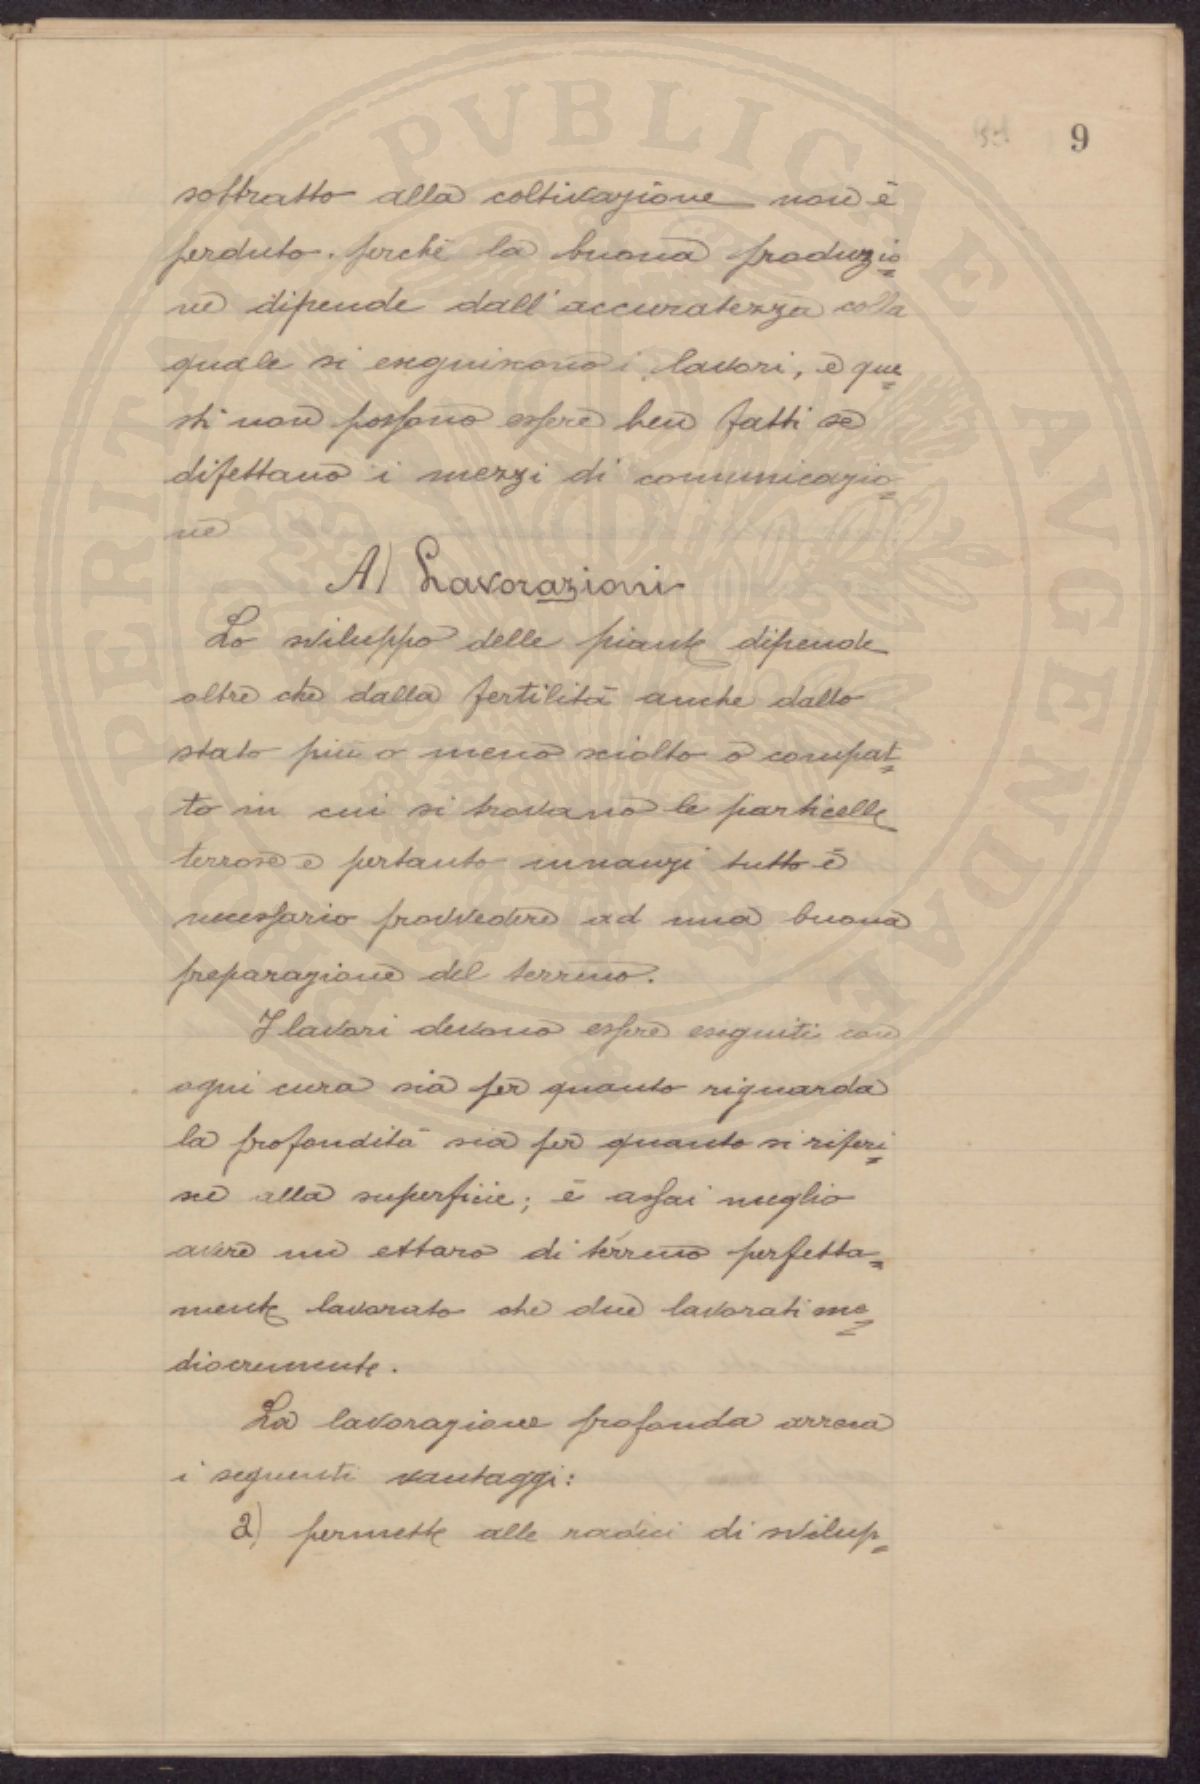 9
sottratto alla coltivazione non è
perduto. perchè la buona produzio=
ne dipende dall'accuratezza colla
quale si eseguiscono i lavori, e que=
sti non possono essere ben fatti se
difettano i mezzi di comunicazio=
ne
A) Lavorazioni
Lo sviluppo delle piante dipende
oltre che dalla fertilità anche dallo
stato più o meno sciolto o compat=
to in cui si trovano le particelle
terrose e pertanto innanzi tutto è
necessario provvedere ad una buona
preparazione del terreno.
I lavori devono essere eseguiti con
ogni cura sia per quanto riguarda
la profondità sia per quanto si riferi=
sce alla superficie; è assai meglio
avere un ettaro di terreno perfetta=
mente lavorato che due lavorati me=
diocremente.
La lavorazione profonda arreca
i seguenti vantaggi:
a) permette alle radici di svilup=
PVBLICAE AVGENDAE PROSPERITATI